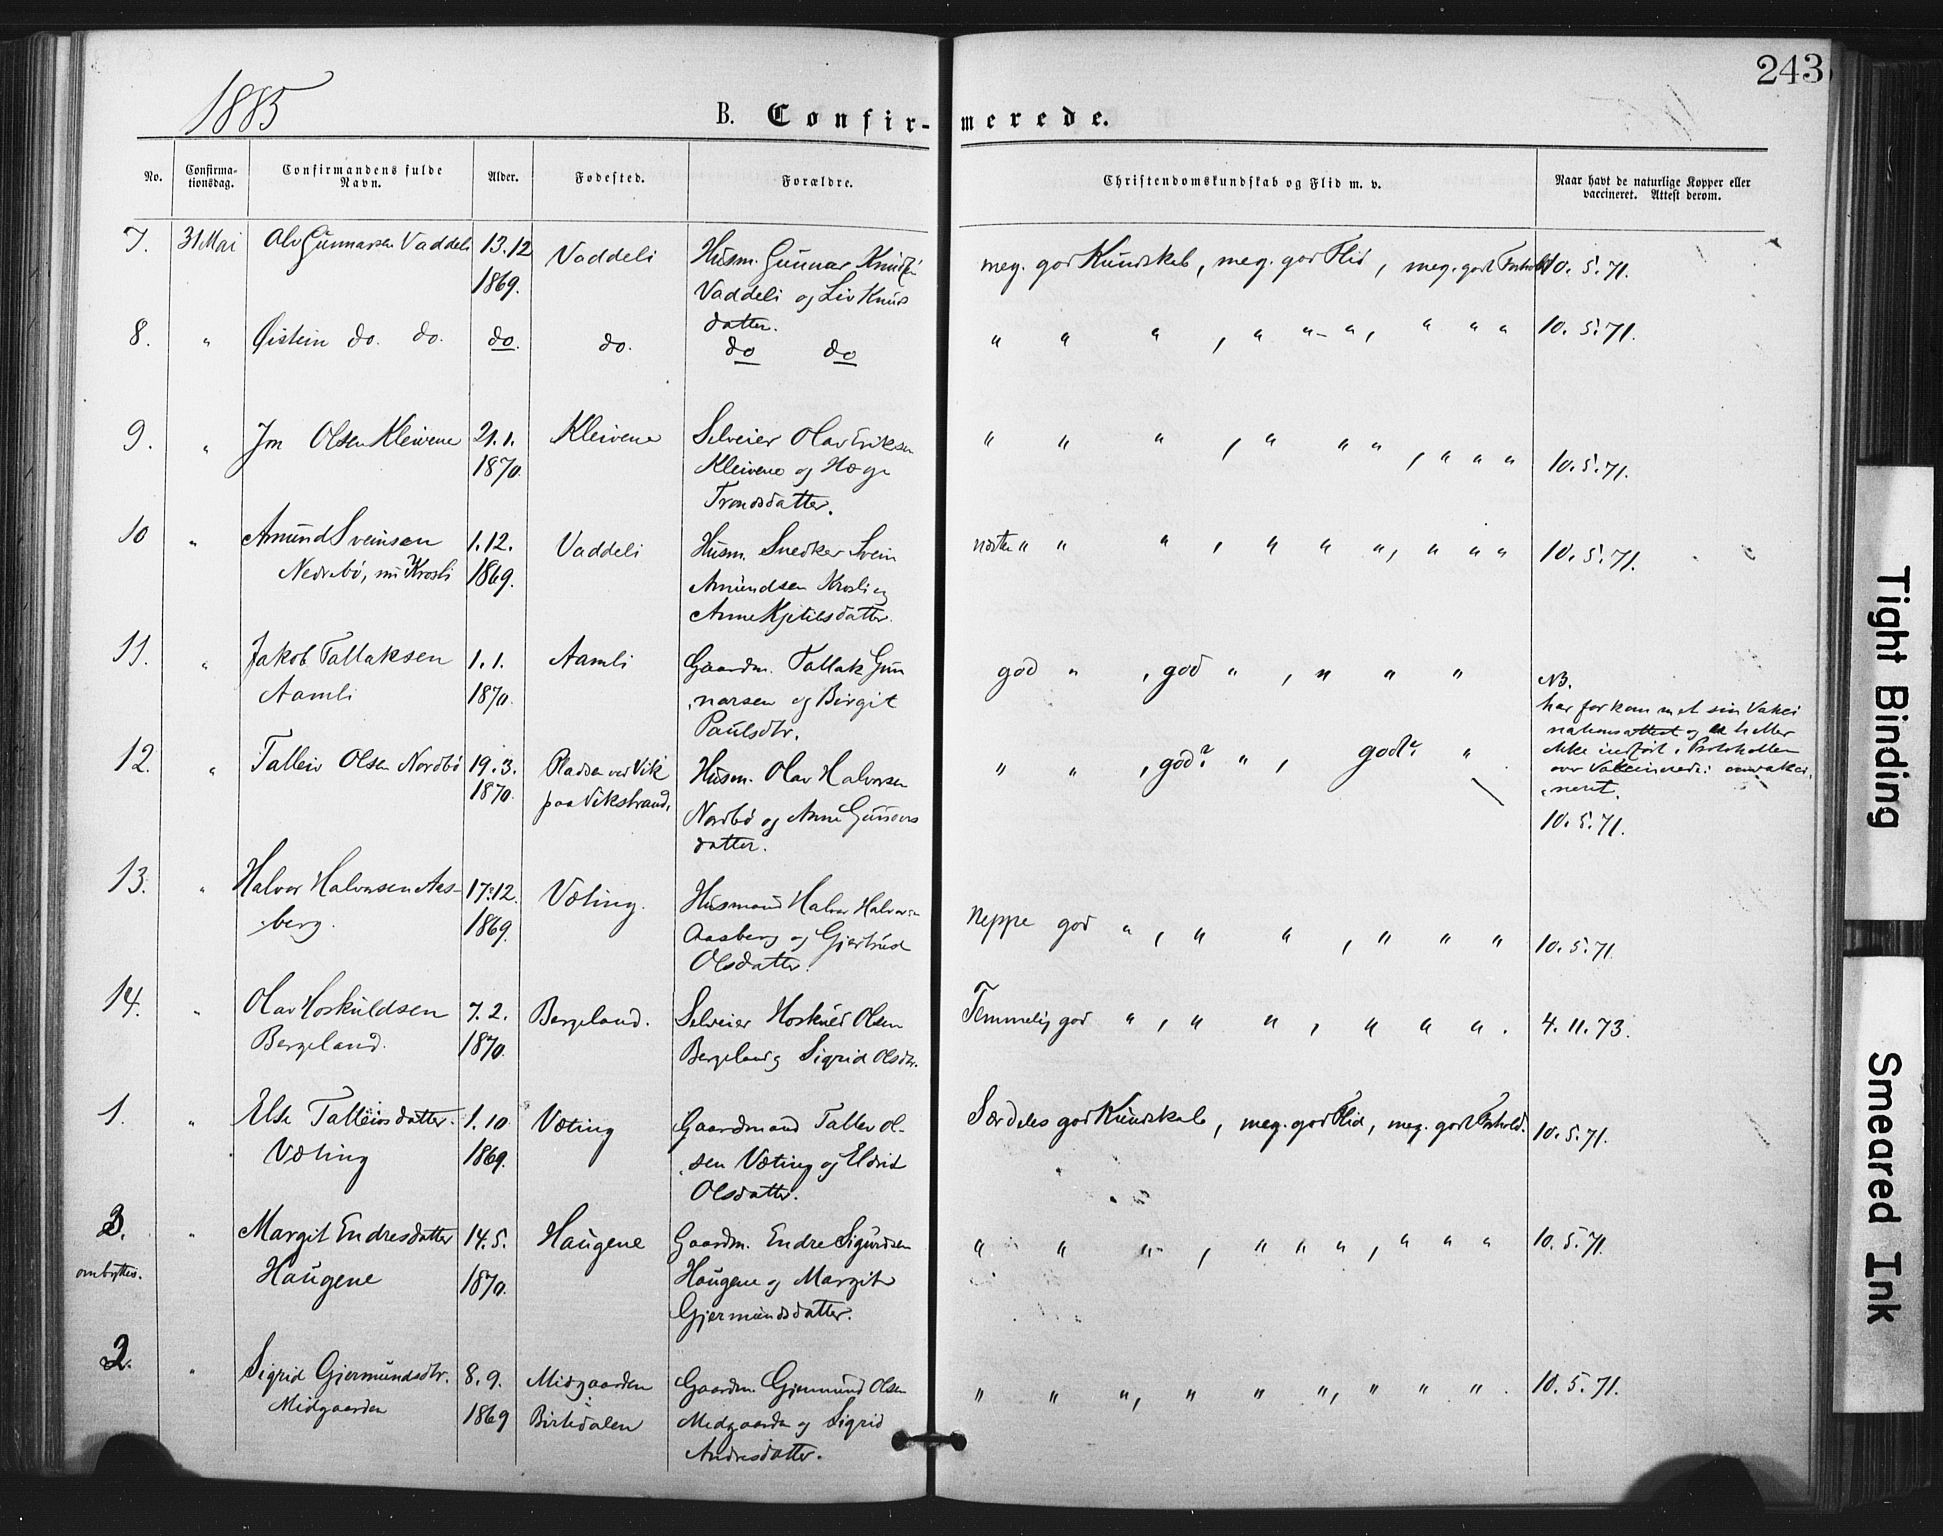 243
1885
B. Confirmerede.
No.
Confirmationsdag.
Confirmandens fulde Navn.
Alder.
Fødested.
Forældre.
Christendomskundskab og Flid m. v.
Naar havt de naturlige Kopper eller vaccineret. Attest derom.
7. 31 Mai Olv Gunnarsen Vaddeli 13.12 Vaddeli Husm. Gunnar Knudsen meg. god Kundskab, meg. god Flid, meg. godt Forhold 10. 5. 71.
1869. Vaddeli og Liv Knuds
datter.
8. " Øistein do. do. do. do. do do " " " , " " - " , " " " 10. 5. 71.
9. " Jon Olsen Kleivene 21. 1. Kleivene Selveier Olav Eriksen " " " , " " " , " " " 10. 5. 71.
1870. Kleivene og Hæge
Trondsdatter.
10 " Amund Sveinsen 1. 12. Vaddeli Husm. Snedker Svein næsten " " " , " " " , " " " 10. 5. 71.
Nedrebø, nu Krosli 1869. Amundsen Krosli og
Anne Kjetilsdatter.
11. " Jakob Tallaksen 1. 1. Aamli Gaardm. Tallak Gun god " , god " , " " " NB.
Aamli 1870. narsen og Birgit har forkommet sin Vakci
Paulsdtr. nationsattest og er heller
ikke indført i Protokollen
over Vakcinerede:
12. " Talleiv Olsen Nordbø 19. 3. Pladsen ved Vik Husm. Olav Halvorsen " " , god? " , godt? "
1870. paa Vikstrand. Nordbø og Anne Gunvors 10. 5. 71.
datter.
13. " Halvor Halvorsen Aas- 17. 12. Væting. Husmand Halvor Halvorsen Neppe god " , " " , " " " 10. 5. 71.
berg. 1869. Aasberg og Gjertrud
Olsdatter.
14. " Olav Hoskuldsen 7. 2. Bergeland. Selveier Hoskuld Olsen Temmelig god " , " " , " " " . 4. 11. 73.
Bergeland. 1870. Bergeland og Sigrid Olsdtr.
1. " Else Talleivsdatter. 1. 10 Væting Gaardmand Tallev Ol- Særdeles god Kundskab, meg. god Flid, meg. godt Forhold. 10. 5. 71.
Væting 1869. sen Væting og Eldrid
Olsdatter.
3. " Margit Endresdatter 14. 5. Haugene Gaardm. Endre Sigurdsen " " " , " " " , " " " 10. 5. 71.
ombyttes. Haugene 1870. Haugene og Margit
Gjermundsdatter.
2. " Sigrid Gjermundsdtr. 8. 9. Midgaarden Gaardm. Gjermund Olsen " " " , " " " , " " " . 10. 5. 71.
Midgaarden 1869 Birkedalen Midgaarden og Sigrid
Andresdatter.
Tight Binding
Smeared Ink